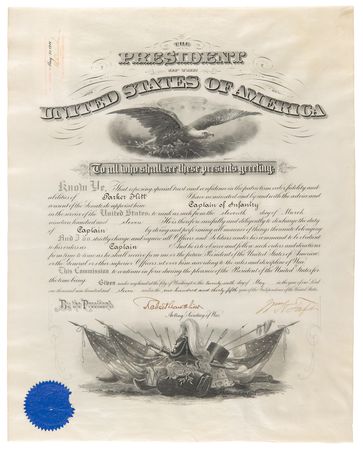 THE
PRESIDENT
OF THE
UNITED STATES OF AMERICA
To all who shall see these presents, greeting:
Know Ye, That reposing special trust and confidence in the patriotism, valor, fidelity and
abilities of Parker Hitt I have nominated and by and with the advice and
consent of the Senate do appoint him Captain of Infantry
in the service of the United States: to rank as such from the eleventh day of March
nineteen hundred and eleven He is therefore carefully and diligently to discharge the duty
of Captain by doing and performing all manner of things thereunto belonging
And I do strictly charge and require all Officers and Soldiers under his command to be obedient
to his orders as Captain And he is to observe and follow such orders and directions
from time to time as he shall receive from me or the future President of the United States of America
or the General or other superior Officers set over him according to the rules and discipline of War
This Commission to continue in force during the pleasure of the President of the United States for
the time being
Given under my hand at the city of Washington this twenty sixth day of May in the year of our Lord
one thousand nine hundred and eleven and in the one hundred and thirty fifth year of the Independence of the United States
By the President:
Robert Shaw Oliver
Acting Secretary of War
Wm H Taft